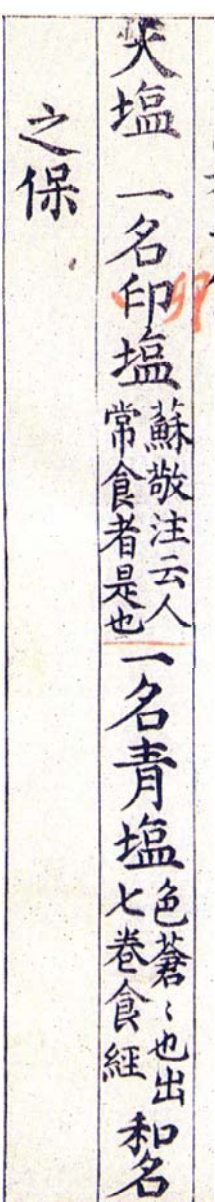 大塩 一名印塩 蘇敬注云人常食者是也 一名青塩 色蒼〻也出七巻食経 和名
之保